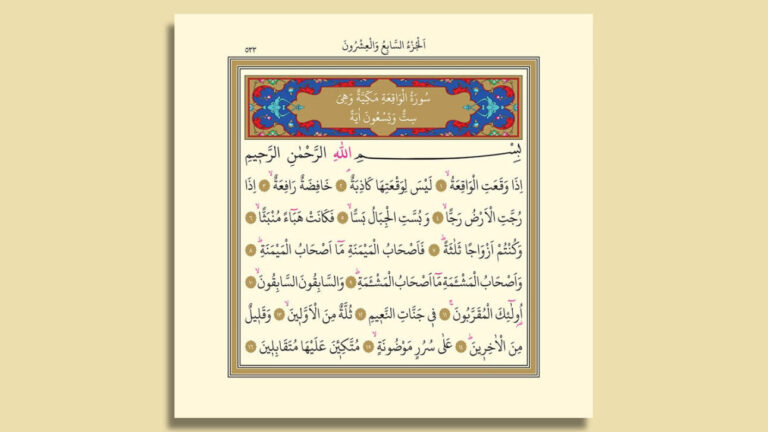 اَلْجُزْءُ السَّابِعُ وَالْعِشْرُونَ
٥٣٣
سُورَةُ الْوَاقِعَةِ مَكِّيَّةٌ وَهِىَ
سِتٌّ وَتِسْعُونَ اٰيَةً
بِسْمِ اللّٰهِ الرَّحْمٰنِ الرَّحٖيمِ
اِذَا وَقَعَتِ الْوَاقِعَةُۙ ﴿١﴾ لَيْسَ لِوَقْعَتِهَا كَاذِبَةٌۢ ﴿٢﴾ خَافِضَةٌ رَافِعَةٌۙ ﴿٣﴾ اِذَا
رُجَّتِ الْاَرْضُ رَجًّاۙ ﴿٤﴾ وَبُسَّتِ الْجِبَالُ بَسًّاۙ ﴿٥﴾ فَكَانَتْ هَبَٓاءً مُنْبَثًّاۙ ﴿٦﴾
وَكُنْتُمْ اَزْوَاجًا ثَلٰثَةًؕ ﴿٧﴾ فَاَصْحَابُ الْمَيْمَنَةِ مَٓا اَصْحَابُ الْمَيْمَنَةِؕ ﴿٨﴾
وَاَصْحَابُ الْمَشْـَٔمَةِ مَٓا اَصْحَابُ الْمَشْـَٔمَةِؕ ﴿٩﴾ وَالسَّابِقُونَ السَّابِقُونَۙ ﴿١٠﴾
اُو۬لٰٓئِكَ الْمُقَرَّبُونَۚ ﴿١١﴾ فٖى جَنَّاتِ النَّعٖيمِ ﴿١٢﴾ ثُلَّةٌ مِنَ الْاَوَّلٖينَۙ ﴿١٣﴾ وَقَلٖيلٌ
مِنَ الْاٰخِرٖينَؕ ﴿١٤﴾ عَلٰى سُرُرٍ مَوْضُونَةٍۙ ﴿١٥﴾ مُتَّكِـٖٔينَ عَلَيْهَا مُتَقَابِلٖينَ ﴿١٦﴾